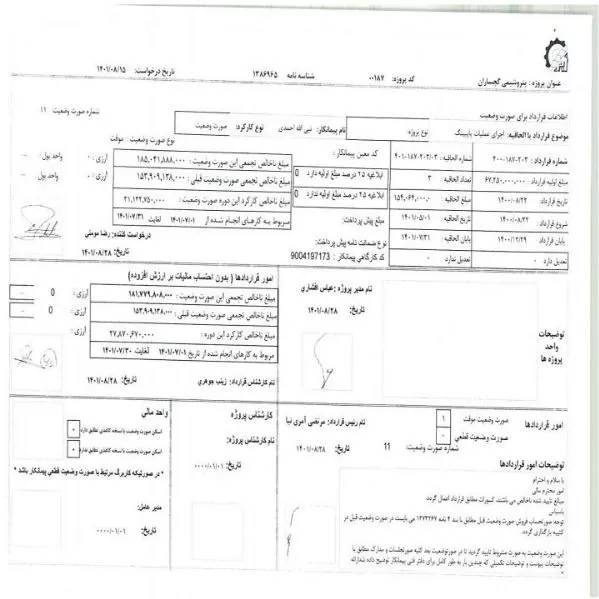 عنوان پروژه : پتروشیمی گچساران
کد پروژه: ۰۰۱۸۷
شناسه نامه ۱۳۸۶۹۶۵
تاریخ درخواست: ۱۴۰۱/۰۸/۱۵
اطلاعات قرارداد برای صورت وضعیت
شماره صورت وضعیت ۱۱
موضوع قرارداد یا الحاقیه: اجرای عملیات پایپینگ
نوع پروژه
نام پیمانکار: نبی الله احمدی
نوع کارکرد: صورت وضعیت
نوع صورت وضعیت: موقت
شماره قرارداد : ۴۰۰-۱۸۷-۲۰۳
شماره الحاقیه : ۴۰۱-۱۸۷-۲۰۳/۰۳
کد معین پیمانکار :
مبلغ ناخالص تجمعی این صورت وضعیت : ۱۸۵,۰۴۱,۸۸۸,۰۰۰
ارزی : ۰
واحد پول -
مبلغ اولیه قرارداد : ۶۷,۲۵۰,۰۰۰,۰۰۰
تعداد الحاقیه : ۳
ابلاغیه ۲۵ درصد مبلغ اولیه دارد 0
مبلغ ناخالص تجمعی صورت وضعیت قبلی : ۱۵۳,۹۰۹,۱۳۸,۰۰۰
ارزی : ۰
واحد پول -
تاریخ قرارداد : ۱۴۰۰/۰۸/۲۲
مبلغ الحاقیه :
ابلاغیه ۲۵ درصد مبلغ اولیه ندارد 0
مبلغ ناخالص کارکرد این دوره صورت وضعیت :
شروع قرارداد : ۱۴۰۰/۰۸/۲۲
تاریخ الحاقیه : ۱۴۰۱/۰۵/۰۱
مبلغ پیش پرداخت:
مربوط به کارهای انجام شده از ۱۴۰۱/۰۷/۰۱ لغایت ۱۴۰۱/۰۷/۳۱
پایان قرارداد : ۱۴۰۰/۱۲/۲۹
پایان الحاقیه : ۱۴۰۱/۰۷/۳۱
نوع ضمانت نامه پیش پرداخت:
درخواست کننده: رضا مومنی
تعدیل دارد : ۰
تعدیل ندارد : ۰
کد کارگاهی پیمانکار : 9004197173
تاریخ: ۱۴۰۱/۰۸/۲۸
توضیحات واحد پروژه ها
نام مدیر پروژه :عباس افشاری
تاریخ: ۱۴۰۱/۰۸/۲۸
امور قراردادها ( بدون احتساب مالیات بر ارزش افزوده)
مبلغ ناخالص تجمعی این صورت وضعیت : ۱۸۱,۷۷۹,۸۰۸,۰۰۰
ارزی : 0 -
مبلغ ناخالص تجمعی صورت وضعیت قبلی : ۱۵۳,۹۰۹,۱۳۸,۰۰۰
ارزی : 0 -
مبلغ ناخالص کارکرد این دوره : ۲۷,۸۷۰,۶۷۰,۰۰۰
ارزی :
مربوط به کارهای انجام شده از تاریخ ۱۴۰۱/۰۷/۰۱ لغایت ۱۴۰۱/۰۷/۳۰
نام کارشناس قرارداد: زینب جوهری
تاریخ: ۱۴۰۱/۰۸/۲۸
امور قراردادها
صورت وضعیت موقت ۱
صورت وضعیت قطعی ۰
شماره صورت وضعیت: 11
نام رئیس قرارداد: مرتضی آمری نیا
تاریخ: ۱۴۰۱/۰۸/۲۸
کارشناس پروژه
نام کارشناس پروژه:
تاریخ: ۰۰۰۰/۰۱/۰۱
واحد مالی
امکان صورت وضعیت با نسخه کاغذی تطابق دارد ۰
امکان صورت وضعیت با نسخه کاغذی تطابق ندارد ۰
* در صورتیکه کاربرگ مرتبط با صورت وضعیت قطعی پیمانکار باشد *
مدیر عامل:
تاریخ: ۰۰۰۰/۰۱/۰۱
توضیحات امور قراردادها
با سلام و احترام
امور محترم مالی
مبالغ تایید شده ناخالص می باشند، کسورات مطابق قرارداد اعمال گردد.
باسپاس
توجه :صورتحساب فروش صورت وضعیت قبل مطابق با سند ۴ نامه ۱۳۷۳۲۶۷ می بایست در صورت وضعیت قبل در
کتیبه بارگذاری گردد.
این صورت وضعیت به صورت مشروط تایید گردید تا در صورتوضعیت بعد کلیه صورتجلسات و مدارک مطابق با
توضیحات پیوست و توضیحات تکمیلی که چندین بار به طور کامل برای دفتر فنی پیمانکار توضیح داده شد ارائه